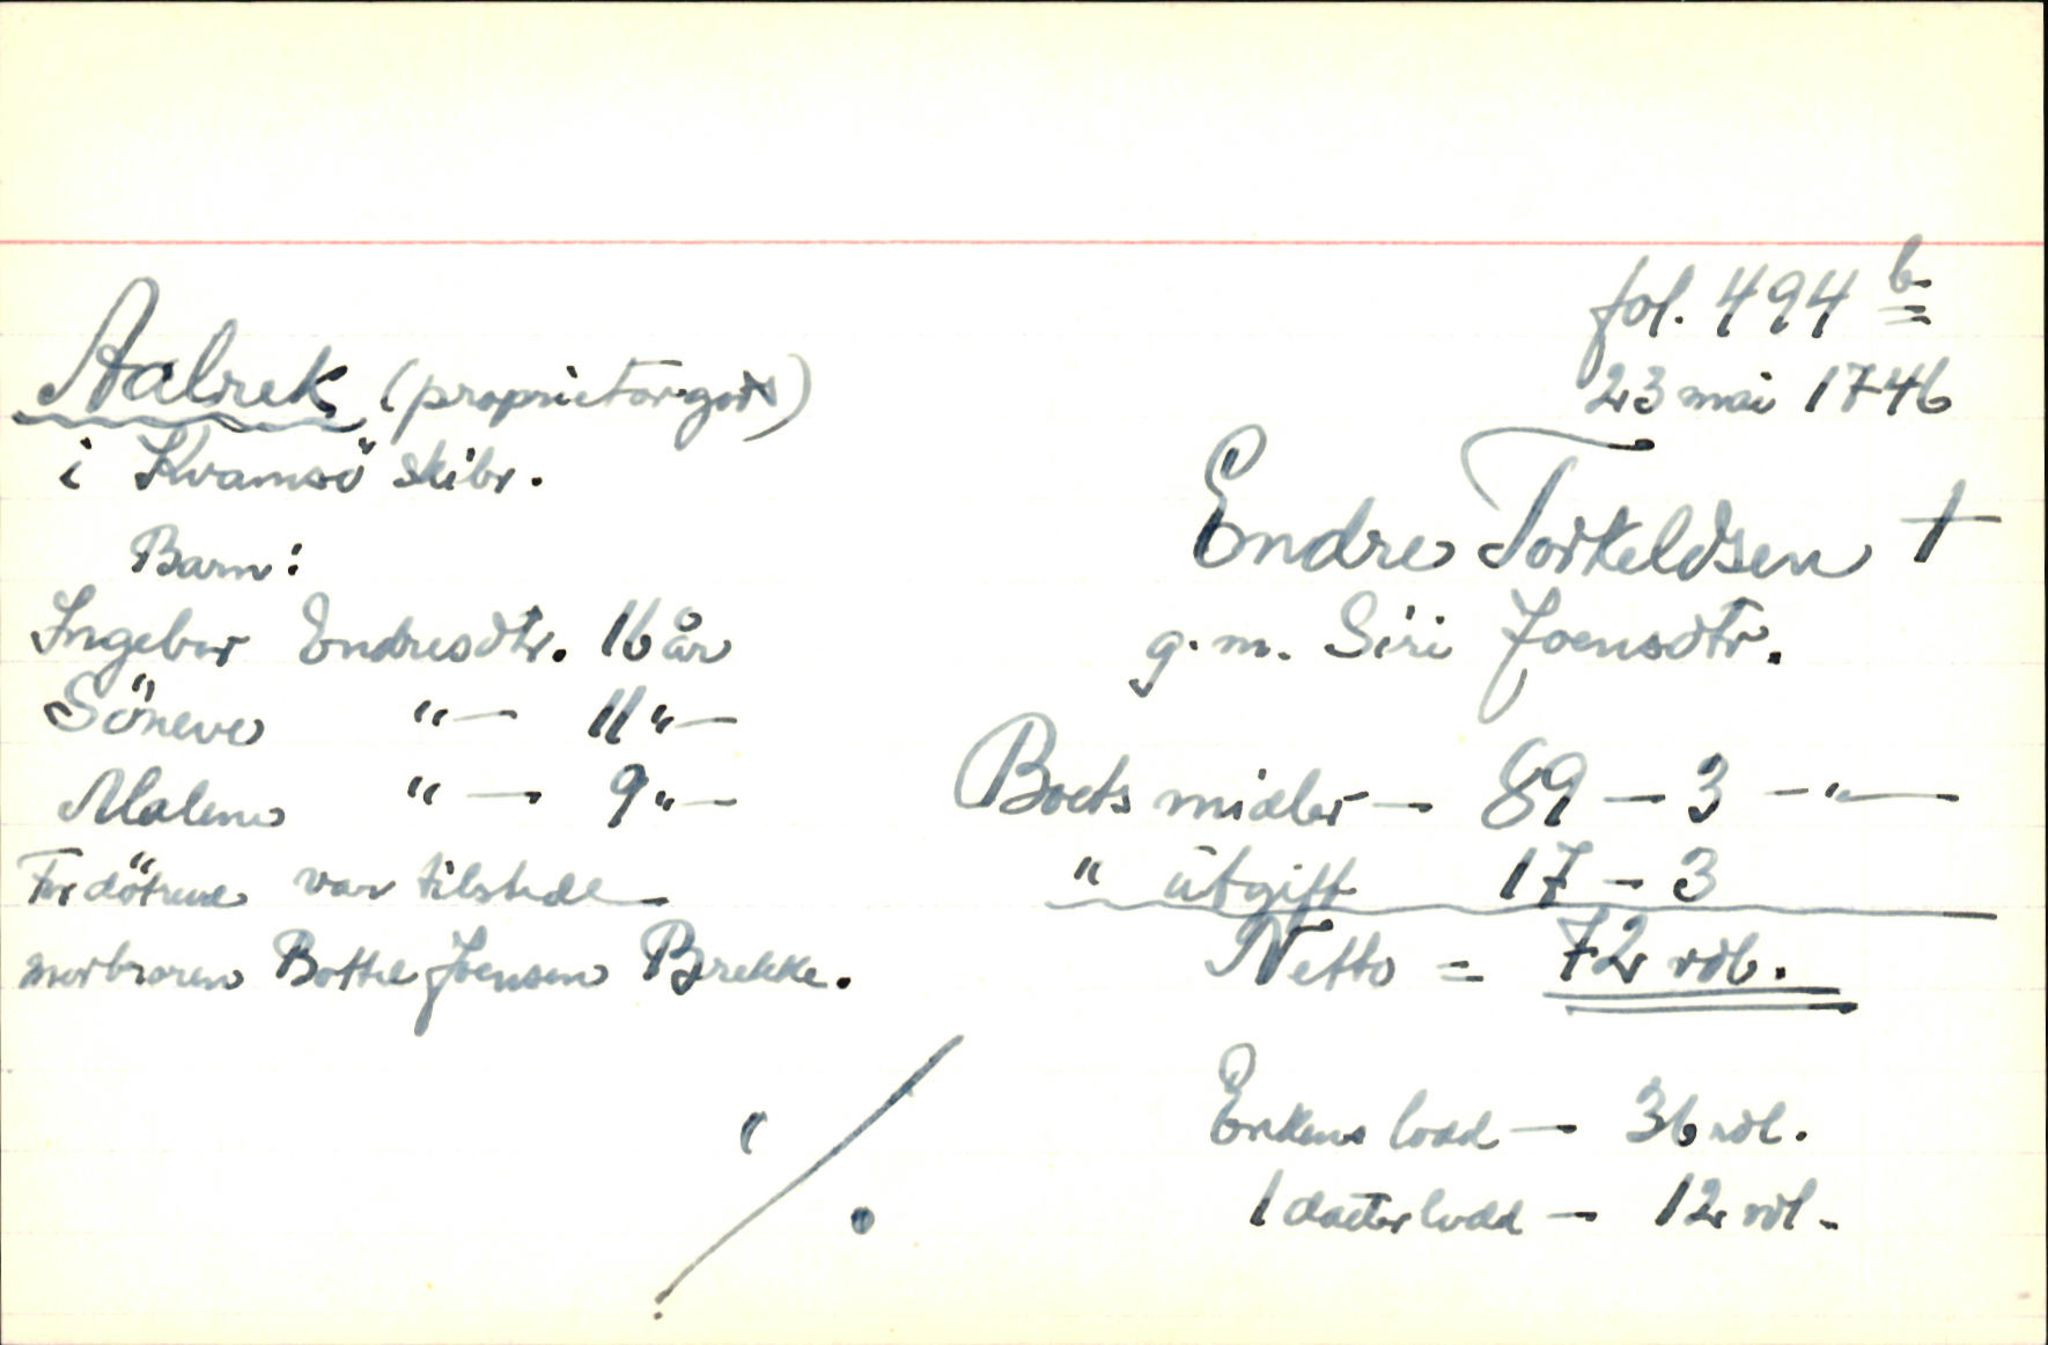 fol. 494 b
23 mai 1746
Aalrek (proprietærgods)
i Kvamsö skibr.
Endre Torkeldsen †
g. m. Siri Joensdtr.
Barn:
Ingebor Endresdtr. 16 år
Söneve "— 11 "—
Malene "— 9 "—
For döterene var tilstede
morbroren Bottel Joensen Brekke.
Boets midler — 89 — 3 — " —
" utgift 17 — 3
Netto = 72 rdl.
Enkens lodd — 36 rdl.
1 datterlodd — 12 rdl.